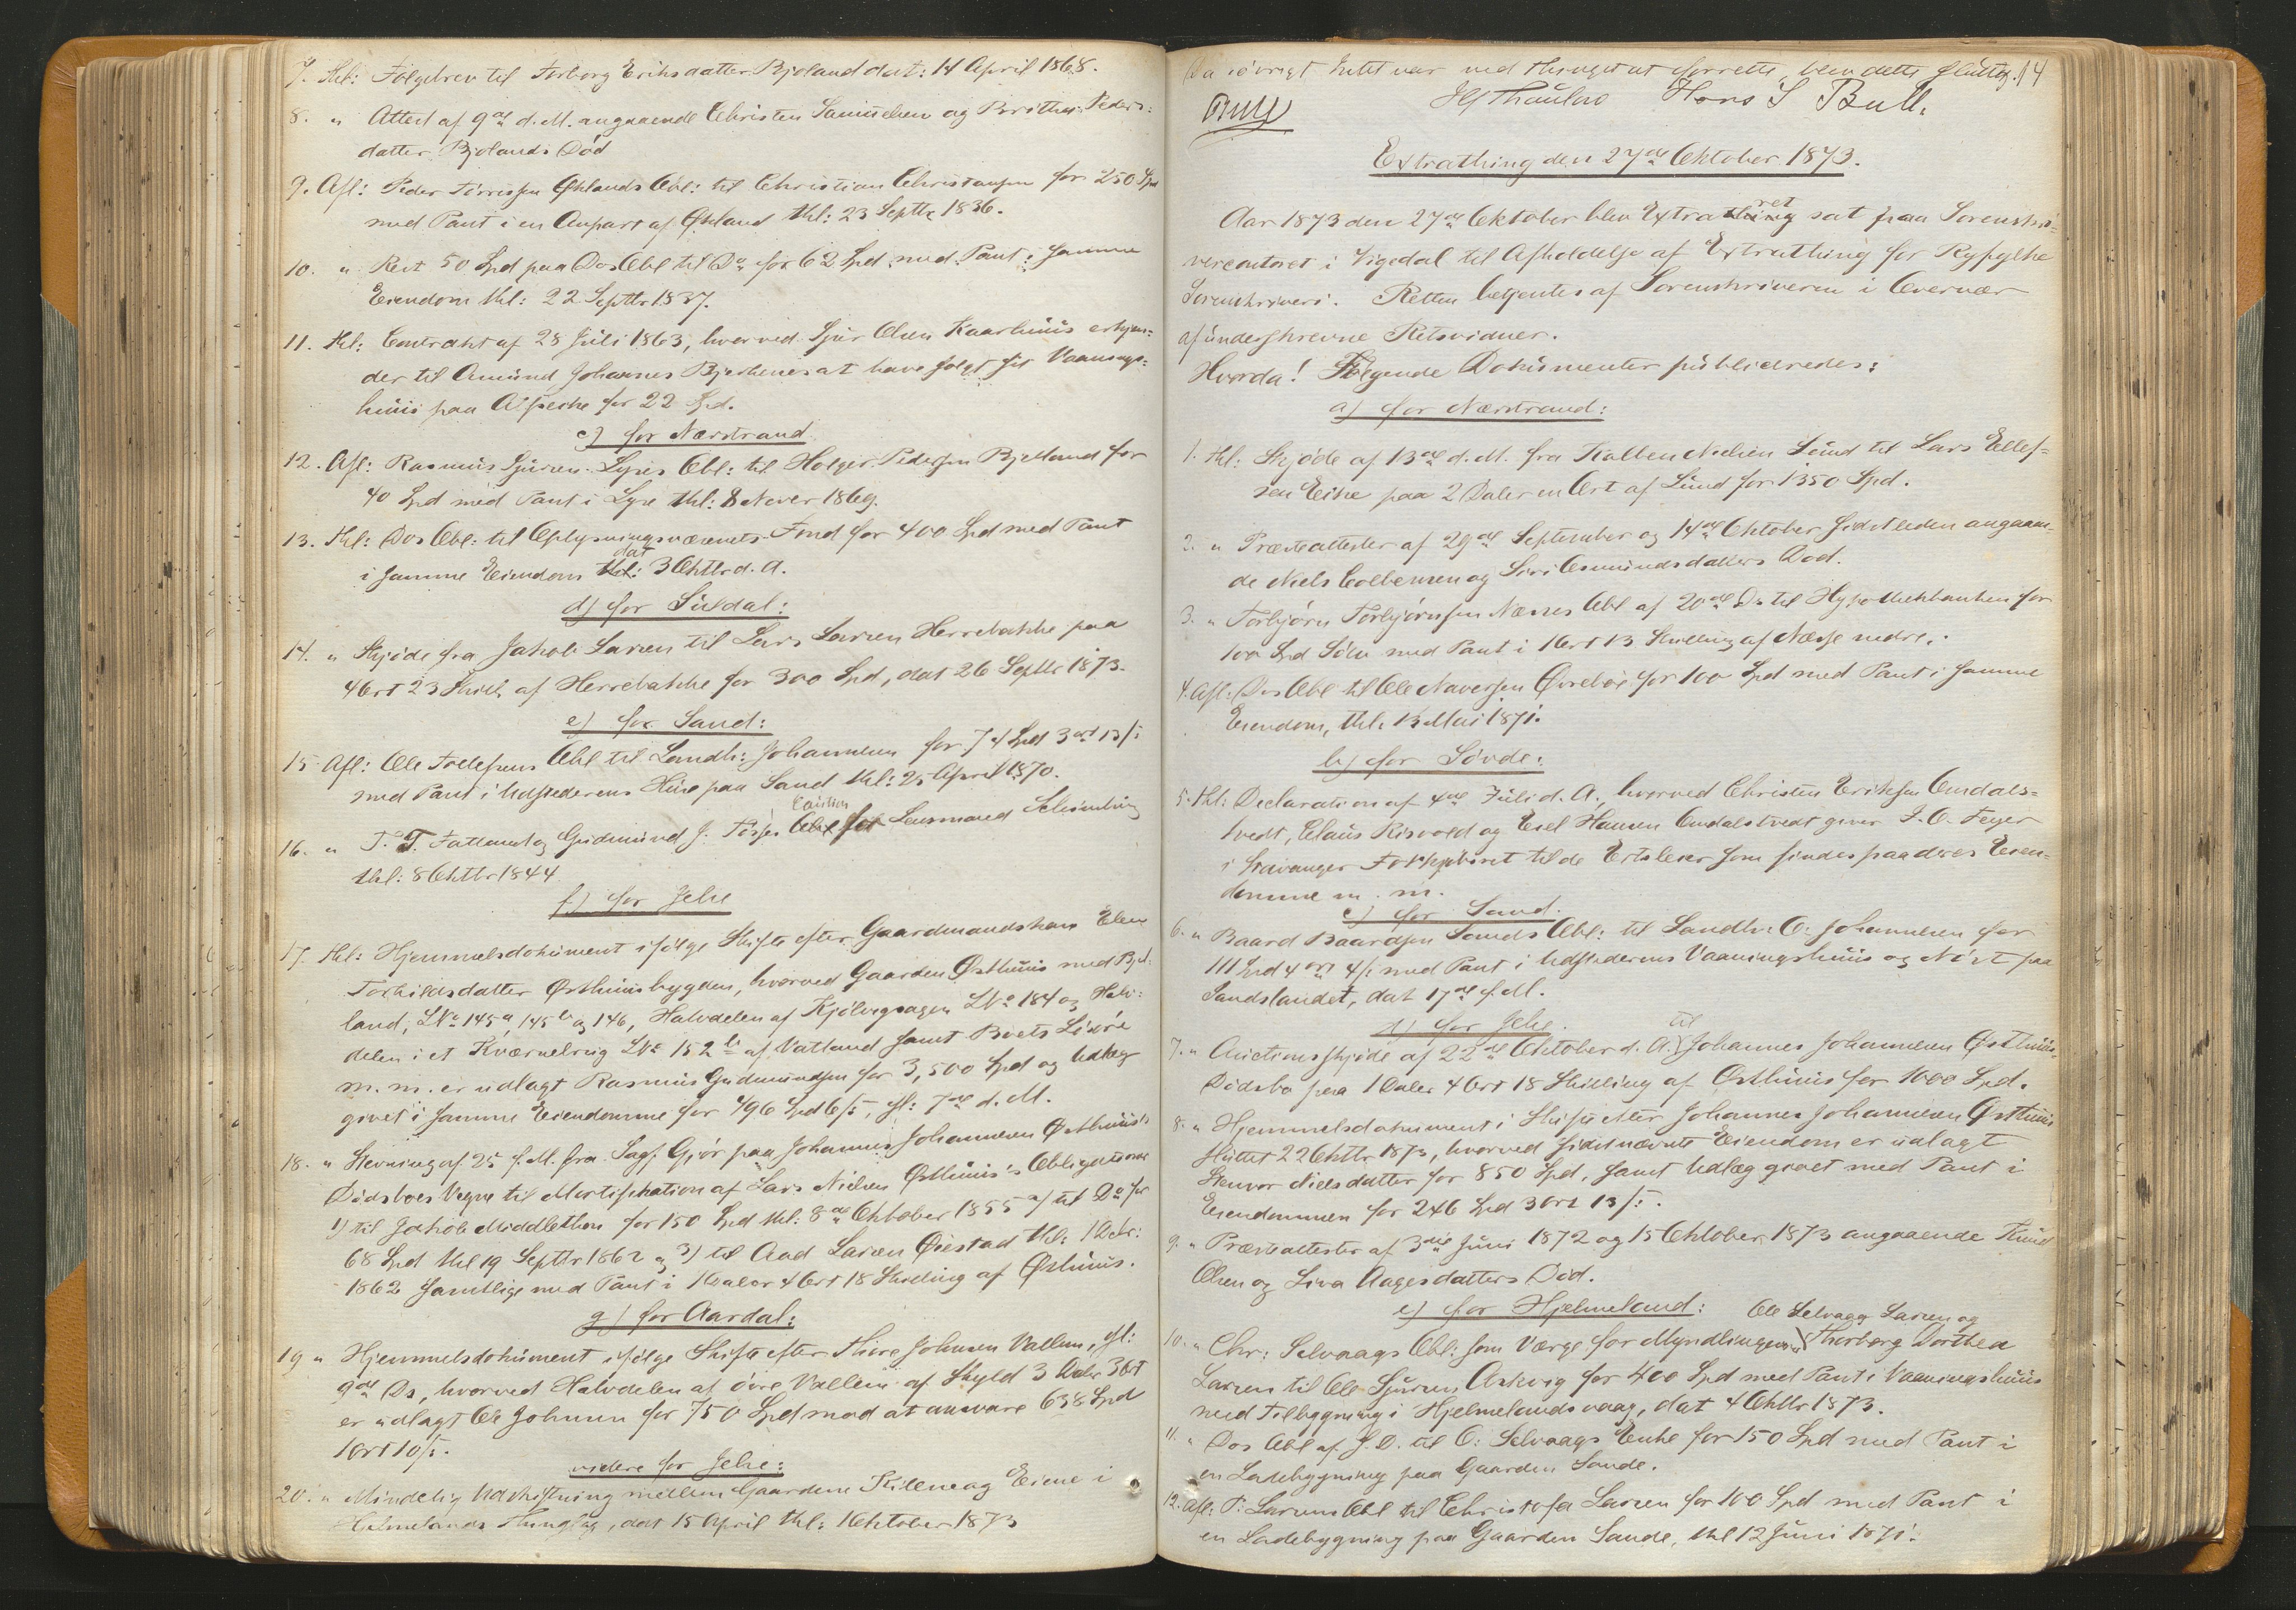 7. Thl: Følgebrev til Torborg Eriksdatter Bjoland dat: 14 April 1868.
8. " Attest af 9de d.M. angaaende Christen Samuelsen og Birithe Peders-
datter Bjolands Død
9. Afl: Peder Tørresen Øklands Obl: til Christian Christensen for 250 Spd
med Pant i en Anpart af Økland thl: 23 Septbr 1836.
10. " Rest 50 Spd paa Ds Obl til Do for 62 Spd med Pant i samme
Eiendom thl: 22 Septbr 1837.
11. Thl: Contrakt af 28 Juli 1863, hvorved Sjur Olsen Kaarhuus erkjen-
der til Amund Johannes Bjerkenes at have solgt sit Vaanings-
huus paa for 22 Spd.
c) for Nærstrand
12. Afl: Rasmus Sjursen Lyres Obl: til Holger Pedersen Bjelland for
40 Spd med Pant i Lyre thl: 8 Novbr 1869.
13. Thl: Ds Obl: til Oplysningsvæsenets Fond for 400 Spd med Pant
i samme Eiendom dat 3 Oktbr d.A.
d) for Suldal:
14. " Skjøde fra Jakob Larsen til Lars Larsen Herrebakke paa
4 Ort 23 Skill af Herrebakke for 300 Spd, dat 26 Septbr 1873.
e) for Sand:
15. Afl: Ole Tollefsens Obl til Landh: Johannesen for 74 Spd 3 ort 13 s:
med Pant i Udstederens Huse paa Sand thl: 25 April 1870.
16. " T. T. Fatland og Gudmund J. Caution for Lensmand
thl: 8 Oktbr 1844
f) for Jelse
17. Thl: Hjemmelsdokument ifølge Skifte efter Gaardmandskone Elen
Torkildsdatter Østhuusbygden, hvorved Gaarden Østhuus med Bjel-
land, LNo 145a, 145b og 146, Halvdelen af Kjølvigsagen LNo 184 og Halv-
delen i et Kværnebrug LNo 152b af Vatland samt Boets Løsøre
m.m. er udlagt Rasmus Gudmundsen for 3,500 Spd og Udlæg
givet i samme Eiendomme for 496 Spd 6 s:, sl: 7de d.M.
18. " Stevning af 25 f.M. fra Sagf. Gjør paa Johannes Johannesen Østhuus's
Dødsboes Vegne til Mortifikation af Lars Nielsen Østhuus's Obligationer
1) til Jakob Middlethon for 150 Spd thl: 8de Oktober 1855 2) til Do for
68 Spd thl 19 Septbr 1862 og 3) til Aad Larsen Øiestad thl: 1 Debr:
1862 samtlige med Pant i 1 Daler 4 Ort 18 Skilling af Østhuus.
g) for Aardal:
19 " Hjemmelsdokument ifølge Skifte efter Thore Johnsen Vallem, sl:
9de Ds, hvorved Halvdelen af øvre Vallem af Skyld 3 Daler 3 Ort
er udlagt Ole Johnsen for 750 Spd mod at ansvare 638 Spd
1 Ort 10 s:.
videre for Jelse:
20. " Mindelig Udskiftning mellem Gaardene Killene og Eiene i
Hjelmelands Thinglag, dat 15 April thl: 1 Oktober 1873
Da iøvrigt Intet var ved Thinget at forrette, blev dette sluttet. 14
Thaulow Hans S Bull.
Bull
Extrathing den 27de Oktober 1873.
Aar 1873 den 27de Oktober blev Extraret sat paa Sorenskri-
vercontoret i Vigedal til Afholdelse af Extrathing for Ryfylke
Sorenskriveri. Retten betjentes af Sorenskriveren i Overvær
af underskrevne Retsvidner.
Hvorda! Følgende Dokumenter publiceredes:
a) for Nærstrand:
1. Thl: Skjøde af 13de d.M. fra Kolben Nielsen Lund til Lars Ellef-
sen Eike paa 2 Daler en Ort af Lund for 1350 Spd.
2. " Præsteattester af 29de September og 14de Oktober sidstleden angaaen-
de Niels Colbensen og Siri Osmundsdatters Død.
3. " Torbjørn Torbjørnsen Næsses Obl af 20de Ds til Hypothekbanken for
100 Spd Sølv med Pant i 1 Ort 13 Skilling af Næsse nedre.
4. Afl: Ds Obl til Ole Øvrebøe for 100 Spd med Pant i samme
Eiendom, thl: 13 Mai 1871.
b) for Søvde:
5. Thl: Declaration af 4de Juli d.A., hvorved Christen Eriksen Omdals-
tvedt, Claus Risvold og Eiel Hansen Omdalstvedt giver I. O. Feyer
i Stavanger Forkjøbsret til de Ertsleier som findes paa deres Eien-
domme m.m.
c) for Sand.
6. " Baard Baardsen Sands Obl: til Landh: O. Johannesen for
111 Spd 4 ort 4 s: med Pant i Udstederens Vaaningshuus og Nøst paa
Sandslandet, dat 17de f.M.
d) for Jelse.
7. " Auctionsskjøde af 22de Oktober d.A. til Johannes Johannesen Østhuus
Dødsbo paa 1 Daler 4 Ort 18 Skilling af Østhuus for 1000 Spd.
8. " Hjemmelsdokument i Skifte efter Johannes Johannesen Østhuus
sluttet 22 Oktbr 1873, hvorved sidstnævnte Eiendom er udlagt
Stenvor Nielsdatter for 850 Spd, samt Udlæg givet med Pant i
Eiendommen for 246 Spd 3 Ort 13 s:.
9. " Præsteattester af 3die Juni 1872 og 15 Oktober 1873 angaaende Knud
Olsen og Siva Aagesdatters Død.
e) for Hjelmeland:
Ole Selvaag Larsen og
10. " Chr: Selvaags Obl: som Værge for Myndlingerne Thorborg Dorthea
Larsen til Ole Sjursen Askvig for 400 Spd med Pant i Vaaningshuus
med Tilbygning i Hjelmelandsvaag, dat 4 Oktbr 1873.
11. " Ds Obl af S.D. til O: Selvaags Enke for 150 Spd med Pant i
en Ladebygning paa Gaarden Sande.
12. Afl: P: Larsens Obl til Christofer Larsen for 100 Spd med Pant i
en Ladebygning paa Gaarden Sande, thl 12 Juni 1871.